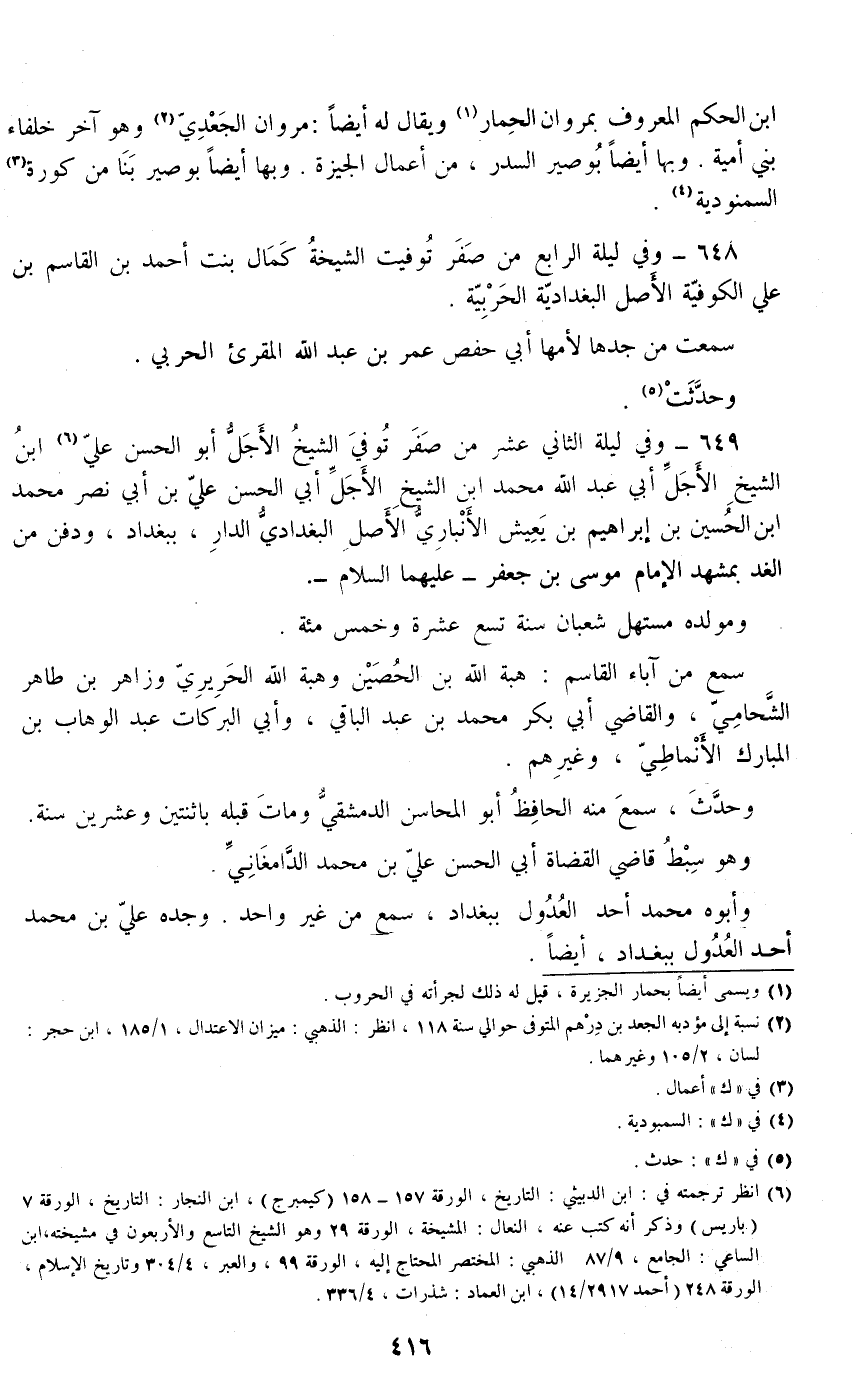 ابن الحكم المعروف بمروان الحِمار(١) ويقال له أيضاً : مروان الجَعْدِيّ(٢) وهو آخر خلفاء
بني أمية . وبها أيضاً بُوصير السدر ، من أعمال الجيزة . وبها أيضاً بوصير بَنَا من كورة(٣)
السمنودية(٤) .
٦٤٨ – وفي ليلة الرابع من صَفَر تُوفيت الشيخةُ كَمَال بنت أحمد بن القاسم بن
علي الكوفيّة الأَصل البغداديّة الحَرْبِيّة .
سمعت من جدها لأمها أبي حفص عمر بن عبد الله المقرئ الحربي .
وحدَّثَتْ(٥) .
٦٤٩ – وفي ليلة الثاني عشر من صَفَر تُوفيَ الشيخُ الأَجَلُّ أبو الحسن عليّ(٦) ابنُ
الشيخ الأَجَلِّ أبي عبد الله محمد ابن الشيخ الأَجَلِّ أبي الحسن عليّ بن أبي نصر محمد
ابن الحُسين بن إبراهيم بن يَعِيش الأَنْباريُّ الأَصل البغداديُّ الدارِ ، ببغداد ، ودفن من
الغد بمشهد الإمام موسى بن جعفر – عليهما السلام –.
ومولده مستهل شعبان سنة تسع عشرة وخمس مئة .
سمع من آباء القاسم : هبة الله بن الحُصَيْن وهبة الله الحَرِيرِيّ وزاهر بن طاهر
الشَّحامِيّ ، والقاضي أبي بكر محمد بن عبد الباقي ، وأبي البركات عبد الوهاب بن
المبارك الأَنْماطِيّ ، وغيرِهم .
وحدَّثَ ، سمعَ منه الحافِظُ أبو المحاسن الدمشقيُّ وماتَ قبله باثنتين وعشرين سنة.
وهو سِبْطُ قاضي القضاة أبي الحسن عليّ بن محمد الدَّامغَانِيِّ .
وأبوه محمد أحد العُدُول ببغداد ، سمع من غير واحد . وجده عليّ بن محمد
أحد العُدُول ببغداد ، أيضاً .
(١) ويسمى أيضاً بحمار الجزيرة ، قيل له ذلك لجرأته في الحروب .
(٢) نسبة إلى مؤدبه الجعد بن دِرْهم المتوفى حوالي سنة ١١٨ ، انظر : الذهبي : ميزان الاعتدال ، ١٨٥/١ ، ابن حجر :
لسان ، ١٠٥/٢ وغيرهما .
(٣) في « ك » أعمال .
(٤) في « ك » : السمبودية .
(٥) في « ك » : حدث .
(٦) انظر ترجمته في : ابن الدبيثي : التاريخ ، الورقة ١٥٧ – ١٥٨ (كيمبرج) ، ابن النجار : التاريخ ، الورقة ٧
(باريس) وذكر أنه كتب عنه ، النعال : المشيخة ، الورقة ٢٩ وهو الشيخ التاسع والأربعون في مشيخته،ابن
الساعي : الجامع ، ٨٧/٩ الذهبي : المختصر المحتاج إليه ، الورقة ٩٩ ، والعبر ، ٣٠٤/٤ وتاريخ الإسلام ،
الورقة ٢٤٨ (أحمد ١٤/٢٩١٧) ، ابن العماد : شذرات ، ٣٣٦/٤ .
٤١٦